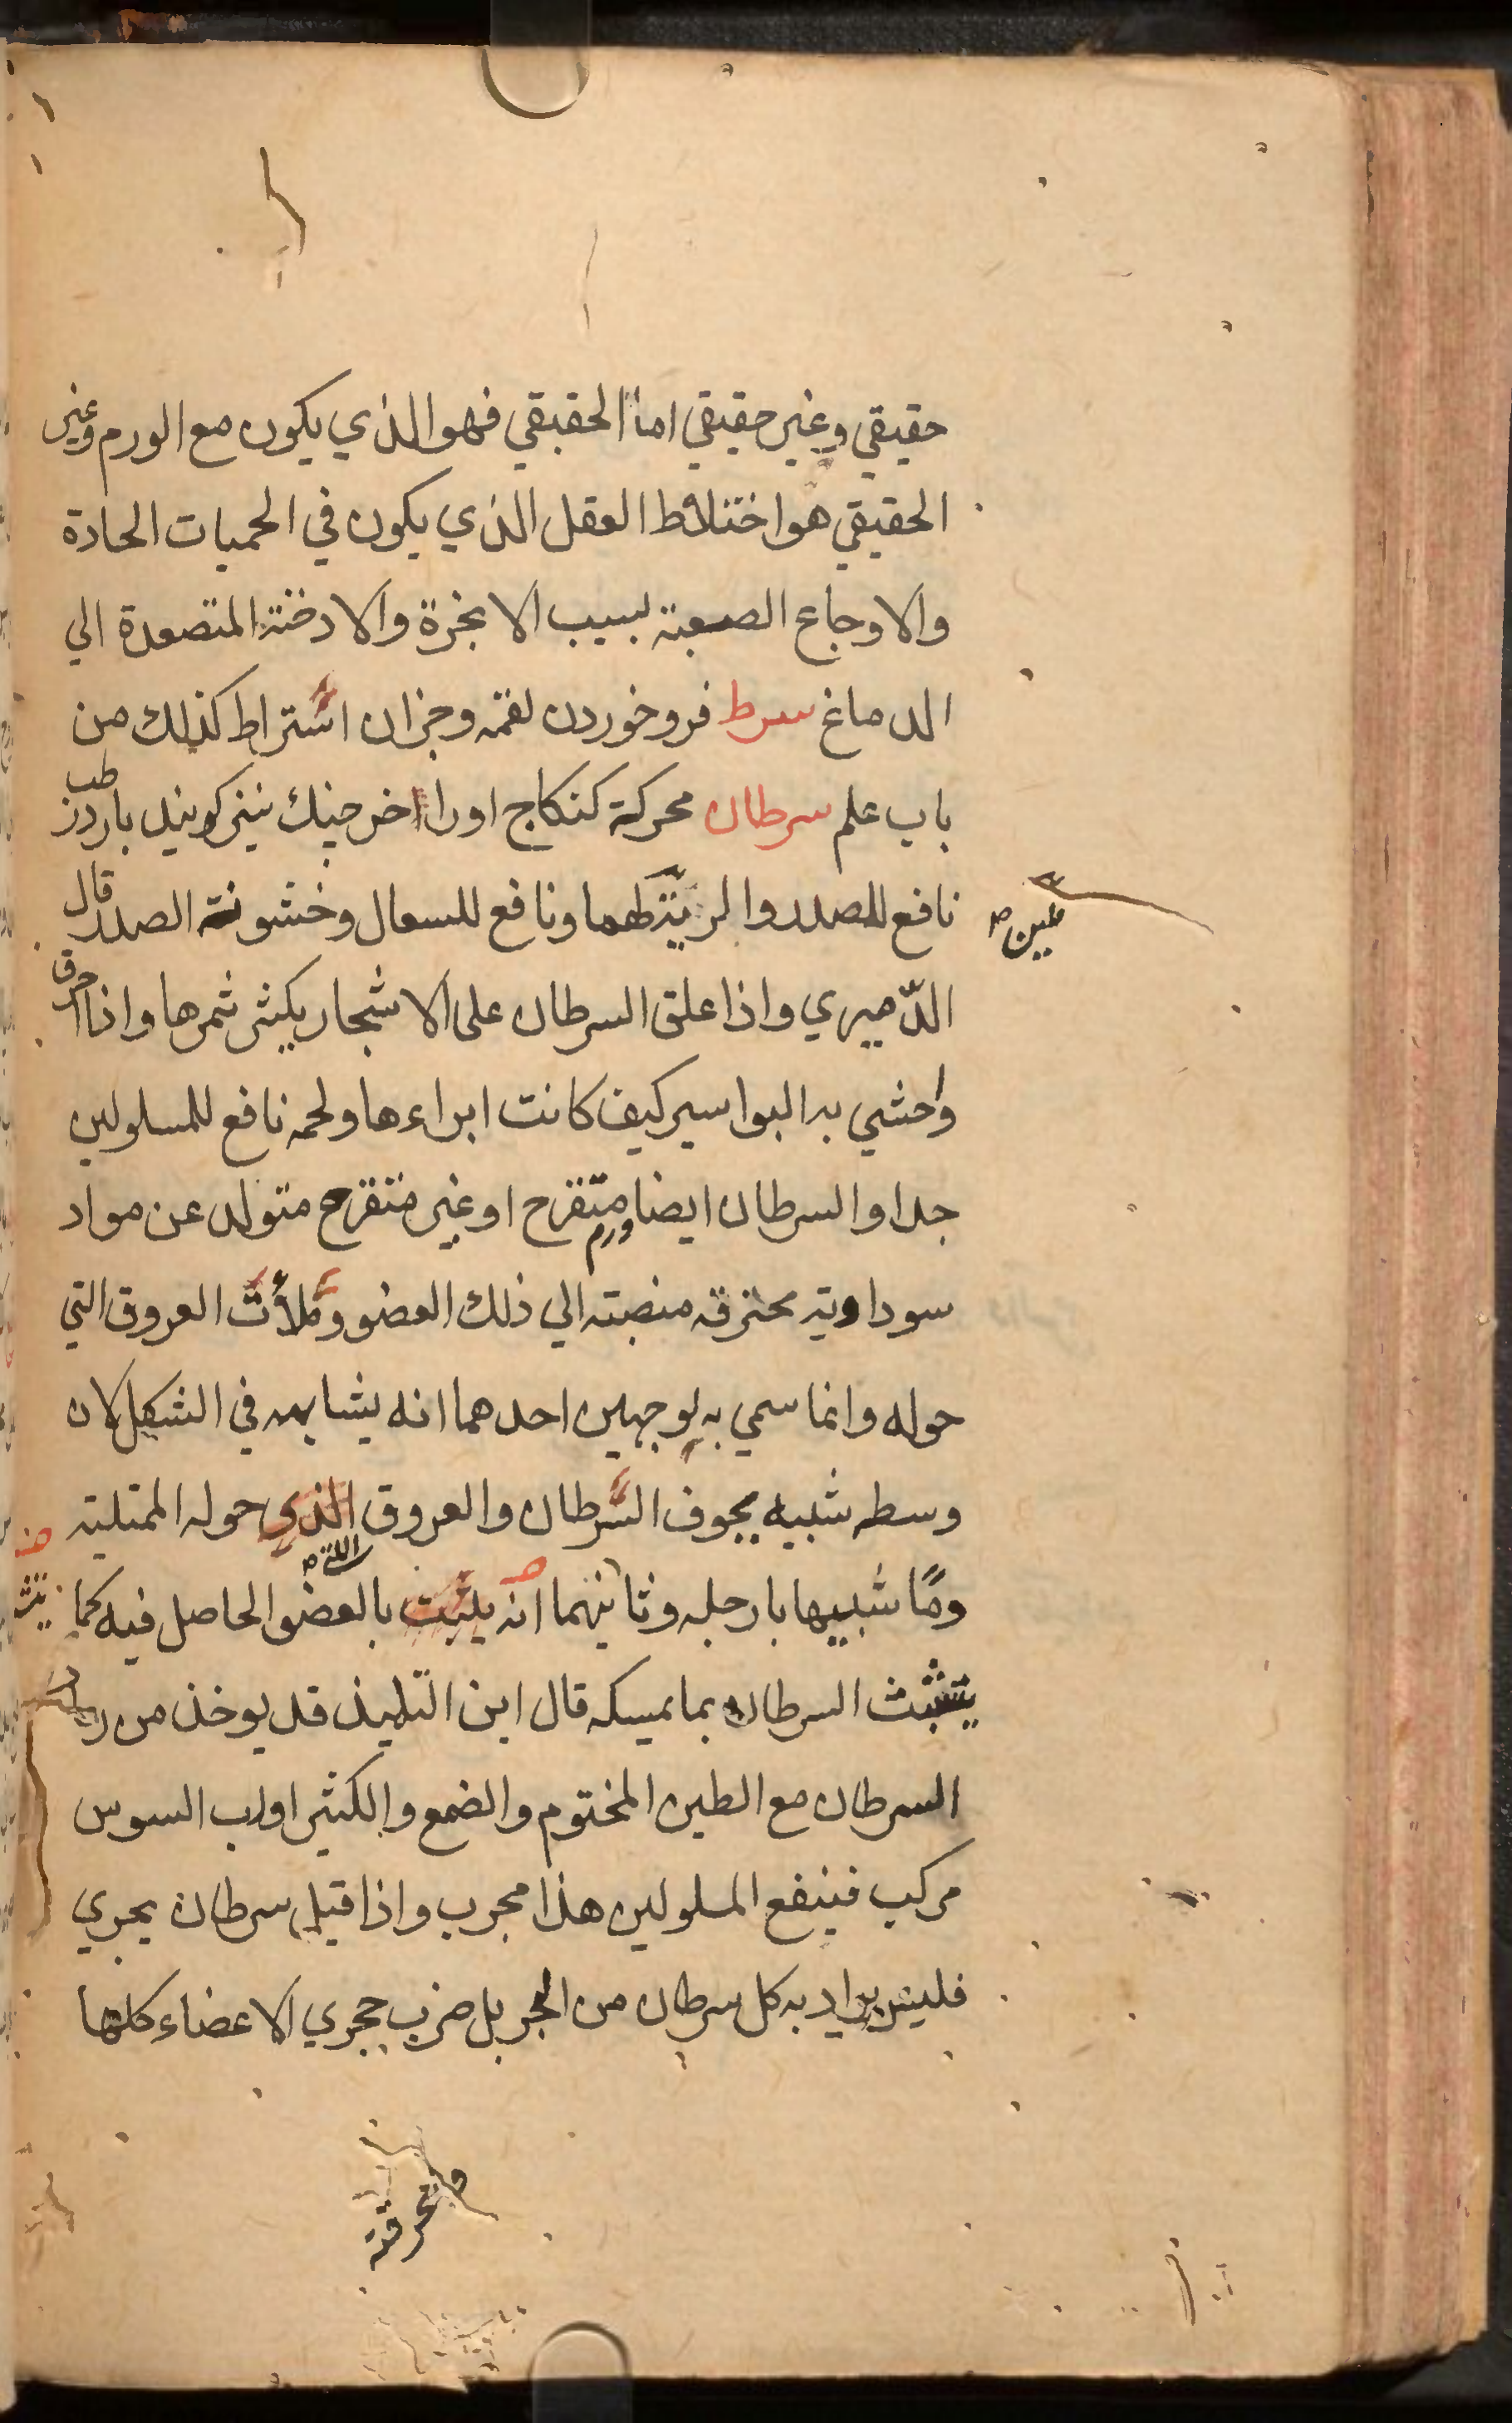 حقيقي وغير حقيقي اما الحقيقي فهو الذي يكون مع الورم وغير
الحقيقي هو اختلاط العقل الذي يكون في الحميات الحادة
والاوجاع الصعبة لسبب الابخرة والادخنة المتصعدة الي
الدماغ سرط فرو خوردن لقمه وجزان استراط كذلك من
باب علم سرطان محركة كنكاج اورا خرجنك نيز كويند بارد رطب
نافع للصدر والرية ونافع للسعال وخشونة الصدر قال
ملين صح
الدّميري واذا علق السرطان على الاشجار يكثر ثمرها واذا احرق
واحشي به البواسير كيف كانت ابراءها ولحمه نافع للمسلولين
جدا والسرطان ايضا ورم متقرح او غير متقرح متولد عن مواد
سوداوية محترقه منصبته الي ذلك العضو وملأت العروق التي
حوله وانما سمي به لوجهين احدهما انه يشابهه في الشكل لان
وسطه شبيه بجوف السَّرطان والعروق الذي حوله الممتلية
اللتي صح
ومًا شبيها بارجله وثانيهما انه يثبت بالعضو الحاصل فيه كما
يتشبث السرطان بما يمسكه قال ابن التلميذ قد يوخذ من
السرطان مع الطين المختوم والضمع والكثيرا ورب السوس
مركب فينفع المسلولين هذا مجرب واذا قيل سرطان بحري
فليس يراد به كل سرطان من البحر بل ضرب حجري الاعضاء كلها